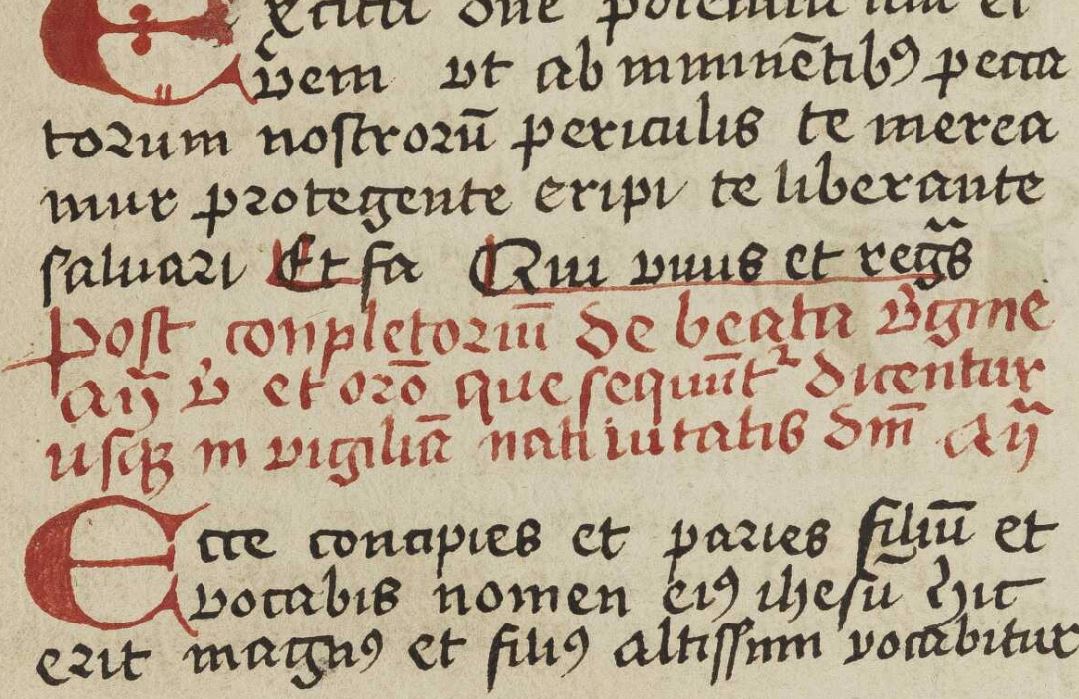 Excita dn̄e potentiā tuā et
veni ut ab imminētibꝰ pecca
torum nostrorū periculis te merea
mur protegente eripi te liberante
saluari Et fa Qui viuis et regs̄
Post conpletoriū de beata v̄gine
an̄ v̄ et orō que sequūtr dicentur
usqꝫ in vigiliā natiuitatis dn̄i an̄
Ecce concipies et paries filiū et
vocabis nomen eiꝰ ihesū hic
erit magnꝰ et filiꝰ altissimi vocabitur